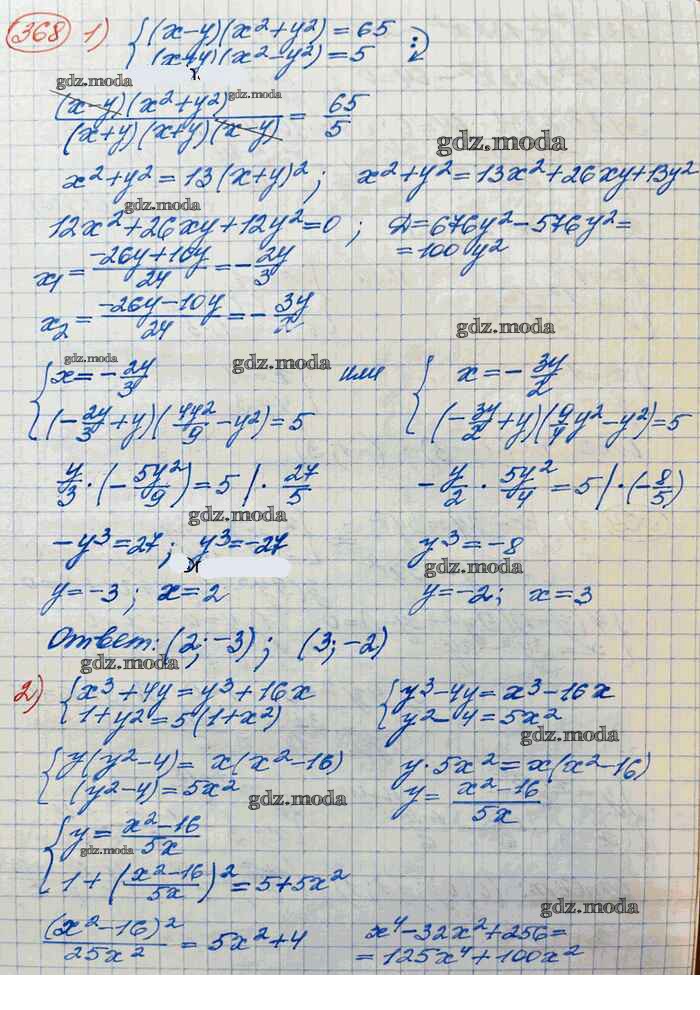 368 1) { (x-y)(x²+y²) = 65
(x+y)(x²-y²) = 5 :
gdz.moda
(x-y)(x²+y²) / (x+y)(x+y)(x-y) = 65/5
gdz.moda
gdz.moda
x²+y² = 13(x+y)² ; x²+y² = 13x²+26xy+13y²
gdz.moda
12x²+26xy+12y²=0 ; D=676y²-576y²=
=100y²
x₁ = (-26y+10y)/24 = -2y/3
x₂ = (-26y-10y)/24 = -3y/2
gdz.moda
gdz.moda
gdz.moda
{ x = -2y/3 или { x = -3y/2
(-2y/3 + y)(4y²/9 - y²) = 5 (-3y/2 + y)(9/4 y² - y²) = 5
y/3 · (-5y²/9) = 5 | · 27/5 -y/2 · 5y²/4 = 5 | · (-8/5)
gdz.moda
-y³=27 ; y³=-27 y³ = -8
gdz.moda
y=-3 ; x=2 y=-2 ; x=3
Ответ: (2; -3) ; (3; -2)
gdz.moda
2) { x³+4y = y³+16x { y³-4y = x³-16x
1+y² = 5(1+x²) y²-4 = 5x²
gdz.moda
{ y(y²-4) = x(x²-16) y·5x² = x(x²-16)
(y²-4) = 5x² y = (x²-16)/5x
gdz.moda
{ y = (x²-16)/5x
gdz.moda
1 + ((x²-16)/5x)² = 5+5x²
gdz.moda
(x²-16)²/25x² = 5x²+4 x⁴-32x²+256=
=125x⁴+100x²